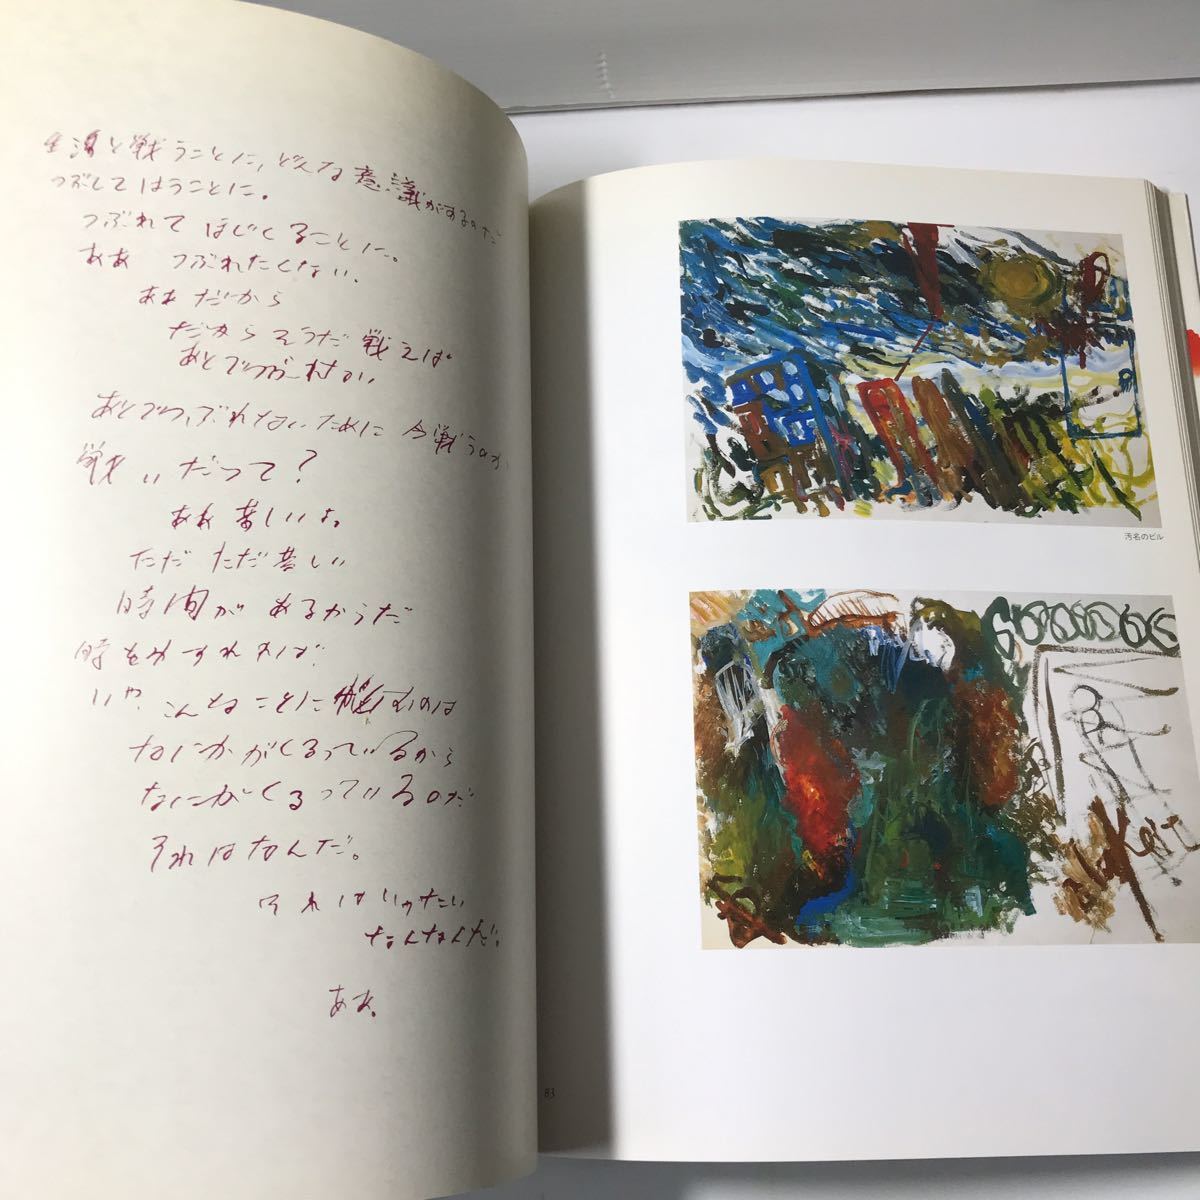 生活と戦うことに、どんな意識があるのだ
つぶしてはうことに。
つぶれて ほじくることに。
ああ つぶれたくない。
ああ だから
だからそうだ戦えば
あとで
あとでつぶれないために 今戦うのか
戦いだって?
ああ 苦しいよ。
ただ ただ苦しい
時間が あるからだ
時をわすれれば?
いや、こんなことに むのは
なにかがくるっているから
なにがくるっているのだ
それはなんだ。
それはいったい
なんなんだ。
ああ。
83
汚名のビル
Keit